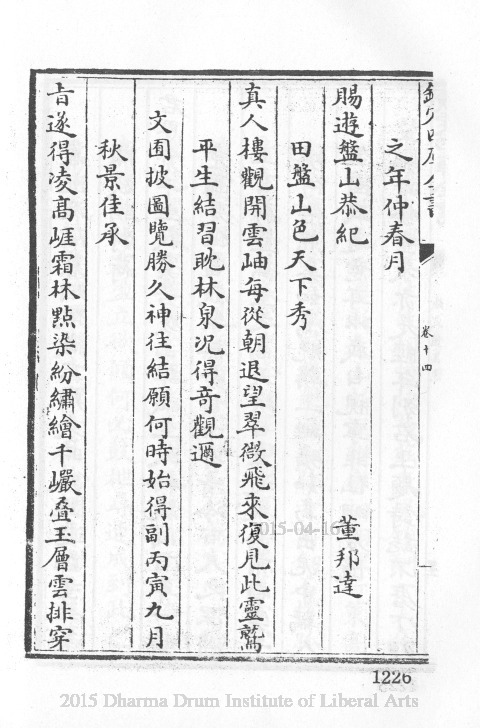 欽定四庫全書
卷十四
之年仲春月
賜遊盤山恭紀
董邦達
田盤山色天下秀
真人樓觀開雲岫每從朝退望翠微飛來復見此靈鷲
平生結習耽林泉況得奇觀邇
文囿披圖覽勝久神往結願何時始得副丙寅九月
秋景佳承
旨遂得凌高崕霜林㸃染紛繡繪千巗叠玉層雲排穿
2015-04-16
1226
2015 Dharma Drum Institute of Liberal Arts